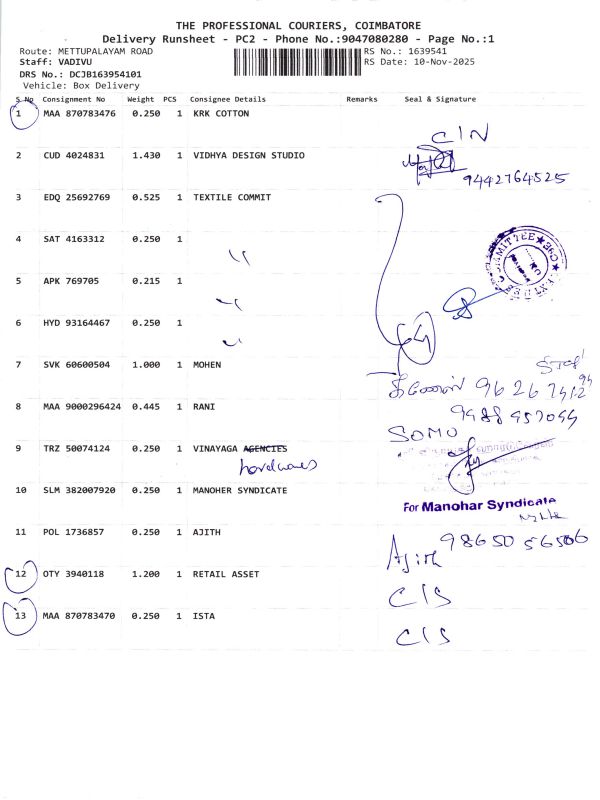 THE PROFESSIONAL COURIERS, COIMBATORE
Delivery Runsheet - PC2 - Phone No.:9047080280 - Page No.:1
Route: METTUPALAYAM ROAD RS No.: 1639541
Staff: VADIVU RS Date: 10-Nov-2025
DRS No.: DCJB163954101
Vehicle: Box Delivery
S No Consignment No Weight PCS Consignee Details Remarks Seal & Signature
1 MAA 870783476 0.250 1 KRK COTTON
C/N
2 CUD 4024831 1.430 1 VIDHYA DESIGN STUDIO
9442764525
3 EDQ 25692769 0.525 1 TEXTILE COMMIT
4 SAT 4163312 0.250 1
5 APK 769705 0.215 1
6 HYD 93164467 0.250 1
7 SVK 60600504 1.000 1 MOHEN
8 MAA 9000296424 0.445 1 RANI
SOMU
9 TRZ 50074124 0.250 1 VINAYAGA AGENCIES
10 SLM 382007920 0.250 1 MANOHER SYNDICATE
For Manohar Syndicate
11 POL 1736857 0.250 1 AJITH
Ajith
12 OTY 3940118 1.200 1 RETAIL ASSET
C/S
13 MAA 870783470 0.250 1 ISTA
C/S